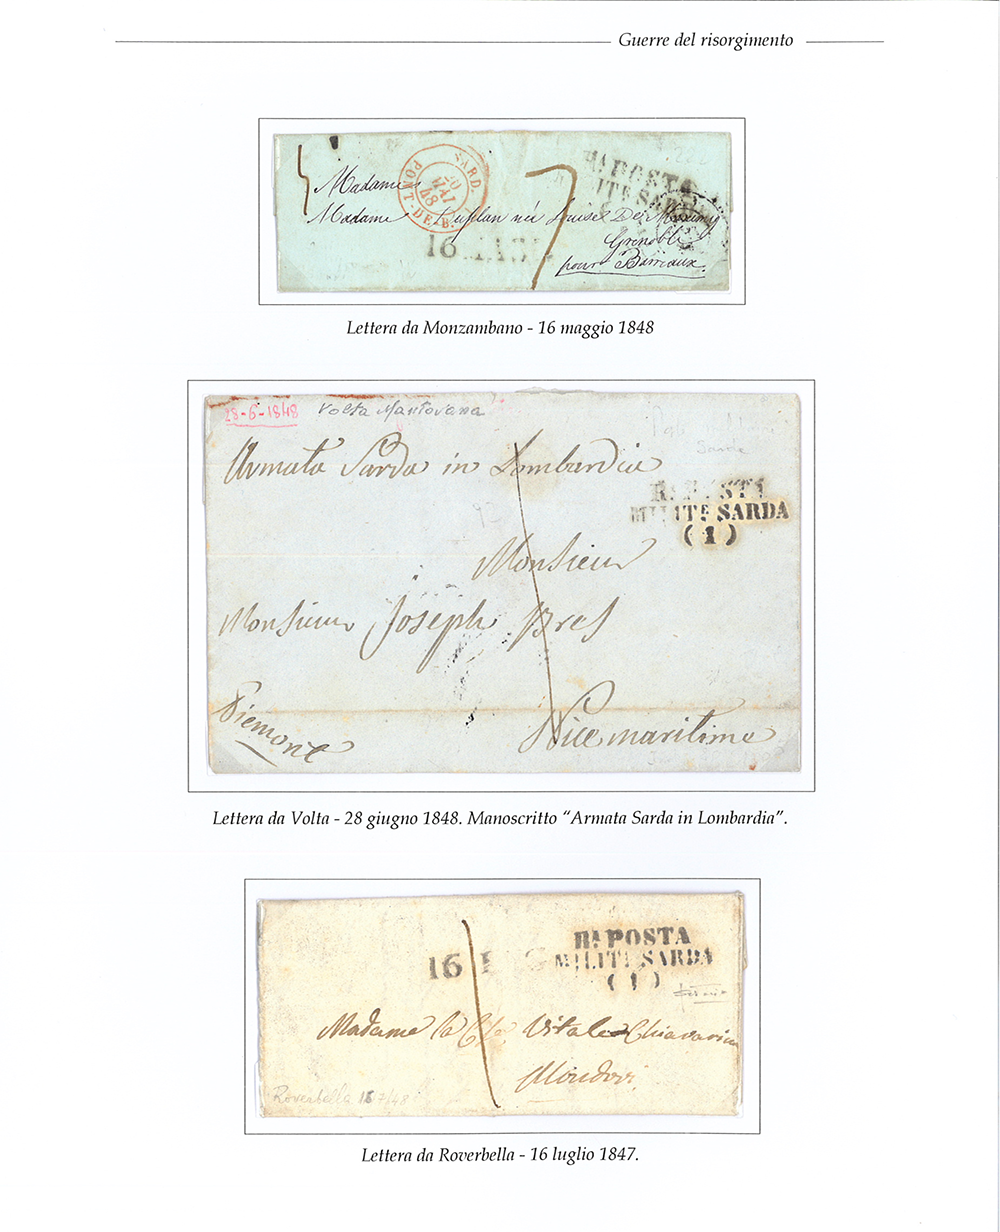 Guerre del risorgimento
SARD.
20
MAI
48
PONT-DE-B.
Rª POSTA
Madame
Madame née Louise De
16
7
Grenoble
pour Barraux.
Lettera da Monzambano - 16 maggio 1848
28-6-1848 Volta Mantovana
Armata Sarda in Lombardia
Sarde
Rª POSTA
MILITᴱ SARDA
(1)
92
Monsieur
Monsieur Joseph Bres
Piemont Nice maritime
Lettera da Volta - 28 giugno 1848. Manoscritto “Armata Sarda in Lombardia”.
Rª POSTA
16
MILITᴱ SARDA
(1)
Madame la C.sse Vitale Chiavarina
Mondovi
Roverbella 16 7/48
Lettera da Roverbella - 16 luglio 1847.